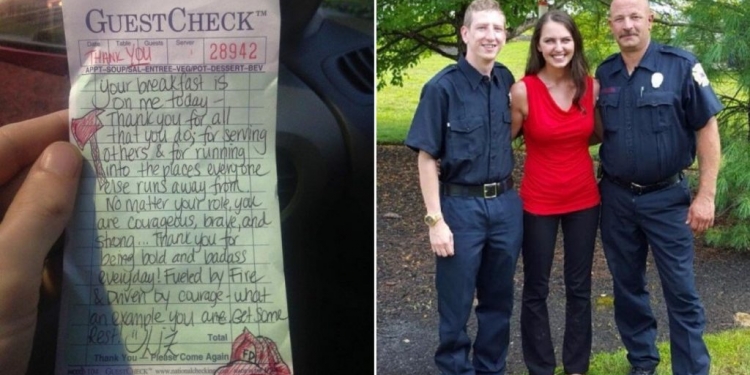 GUESTCHECK™
Date Table Guests Server
THANK YOU
28942
APPT-SOUP/SAL-ENTREE-VEG/POT-DESSERT-BEV
your breakfast is
on me today -
Thank you for all
that you do; for serving
others & for running
into the places everyone
else runs away from.
No matter your role, you
are courageous, brave, and
strong... Thank you for
being bold and badass
everyday! Fueled by Fire
& Driven by courage - what
an example you are. Get some
Rest!
Liz
Total
Thank You - Please Come Again
GUESTCHECK™